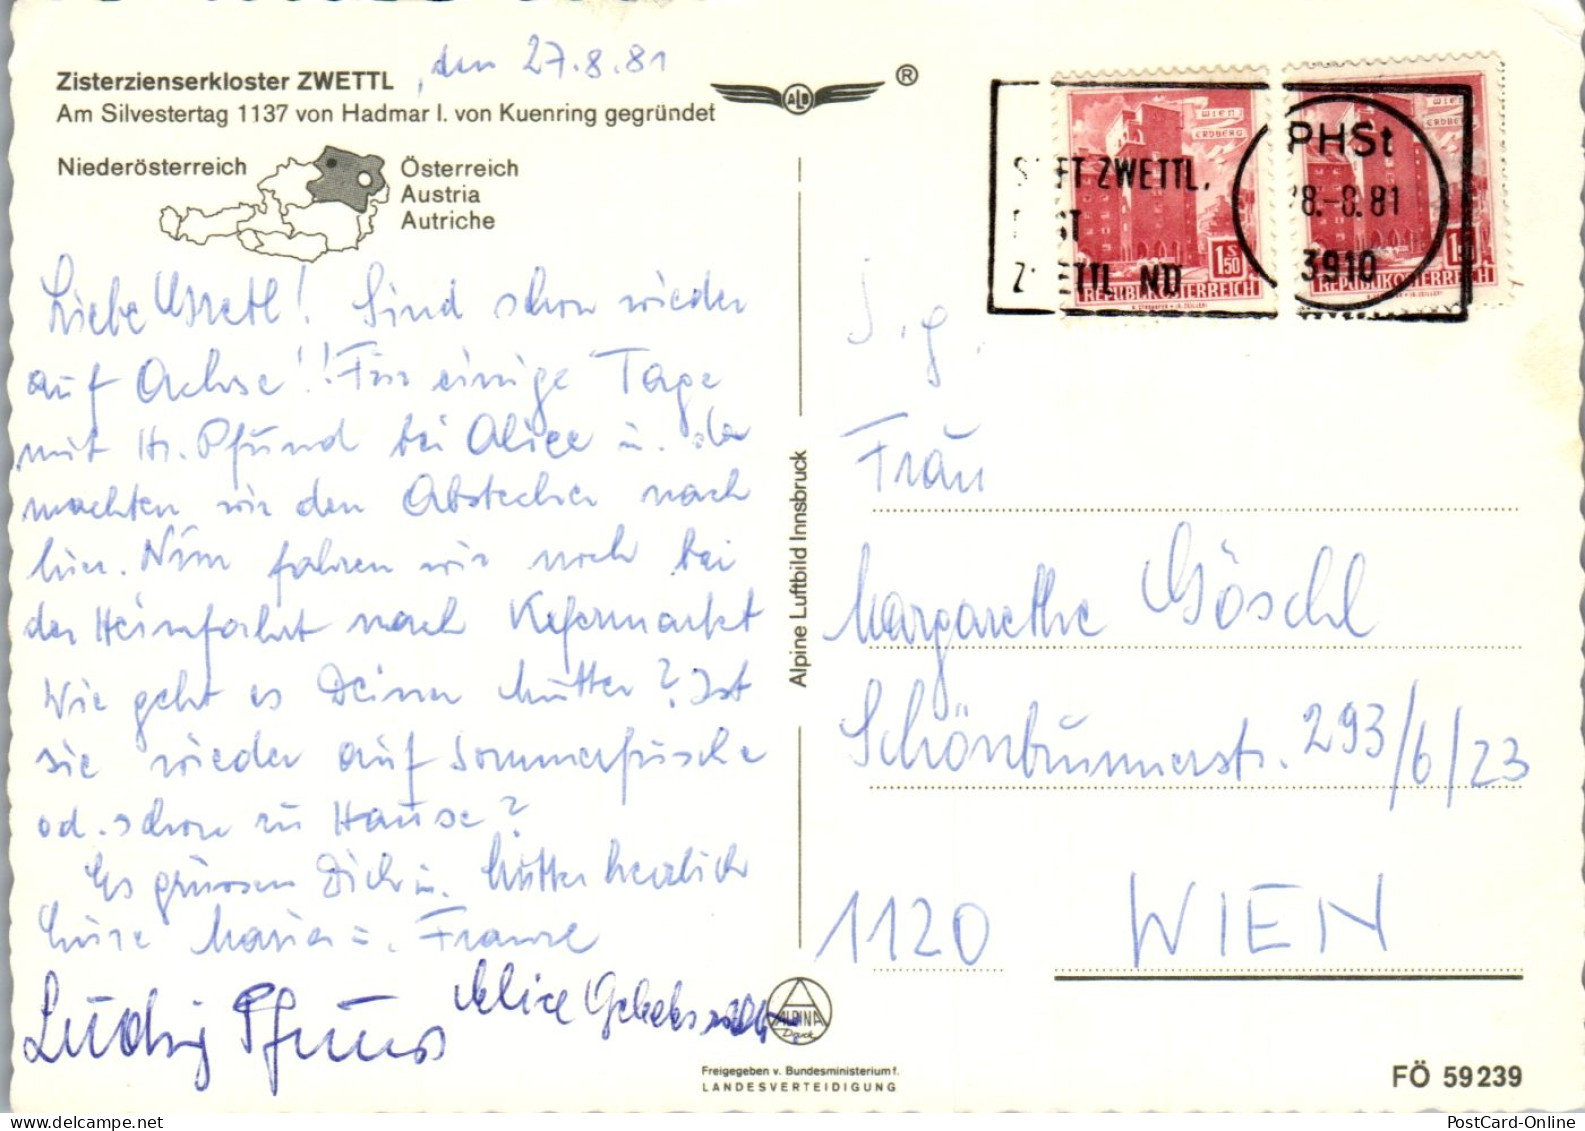 Zisterzienserkloster ZWETTL, den 27.8.81
Am Silvestertag 1137 von Hadmar I. von Kuenring gegründet
Niederösterreich
Österreich
Austria
Autriche
ALB
®
Liebe Gretl! Sind schon wieder
auf Achse!! Für einige Tage
mit Hr. Pfund bei Alice u. da
machten wir den Abstecher nach
hier. Nun fahren wir noch bei
der Heimfahrt nach Kefermarkt
Wie geht es Deiner Mutter? Ist
sie wieder auf Sommerfrische
od. schon zu Hause?
Es grüssen Dich u. Mutter herzlich
Eure Maria u. Franzl
Ludwig Pfund Alice
Alpine Luftbild Innsbruck
WIEN
ERDBERG
1.50
REPUBLIK ÖSTERREICH
WIEN
ERDBERG
1.50
REPUBLIK ÖSTERREICH
ST FT ZWETTL,
ST
Z ETTL NÖ
PHSt
28.-8.81
3910
S. g.
Frau
Margarethe Göschl
Schönbrunnerstr. 293/6/23
1120 WIEN
ALPINA
Druck
Freigegeben v. Bundesministerium f.
LANDESVERTEIDIGUNG
FÖ 59239
PostCard-Online